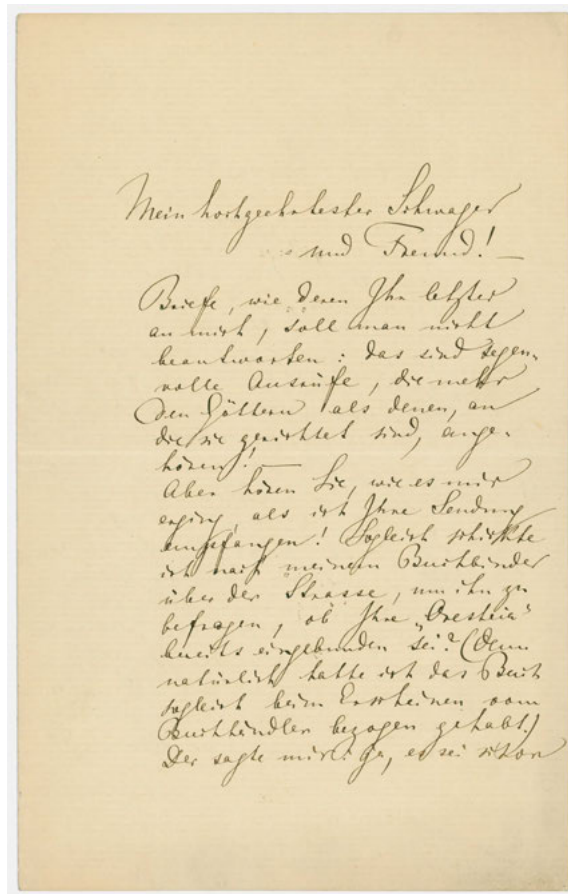 Mein hochgeehrtester Schwager
und Freund! –
Briefe, wie denen Ihr letzter
an mich, soll man nicht
beantworten: das sind segen-
volle Ausrufe, die mehr
den Göttern als denen, an
die sie gerichtet sind, ange-
hören! –
Aber hören Sie, wie es mir
erging, als ich Ihre Sendung
empfangen! Sogleich schickte
ich nach meinem Buchbinder
über der Strasse, um ihn zu
befragen, ob Ihre „Oresteia"
bereits eingebunden sei? (Denn
natürlich hatte ich das Buch
sogleich beim Erscheinen vom
Buchhändler bezogen gehabt.)
Der sagte mir: ja, es sei schon